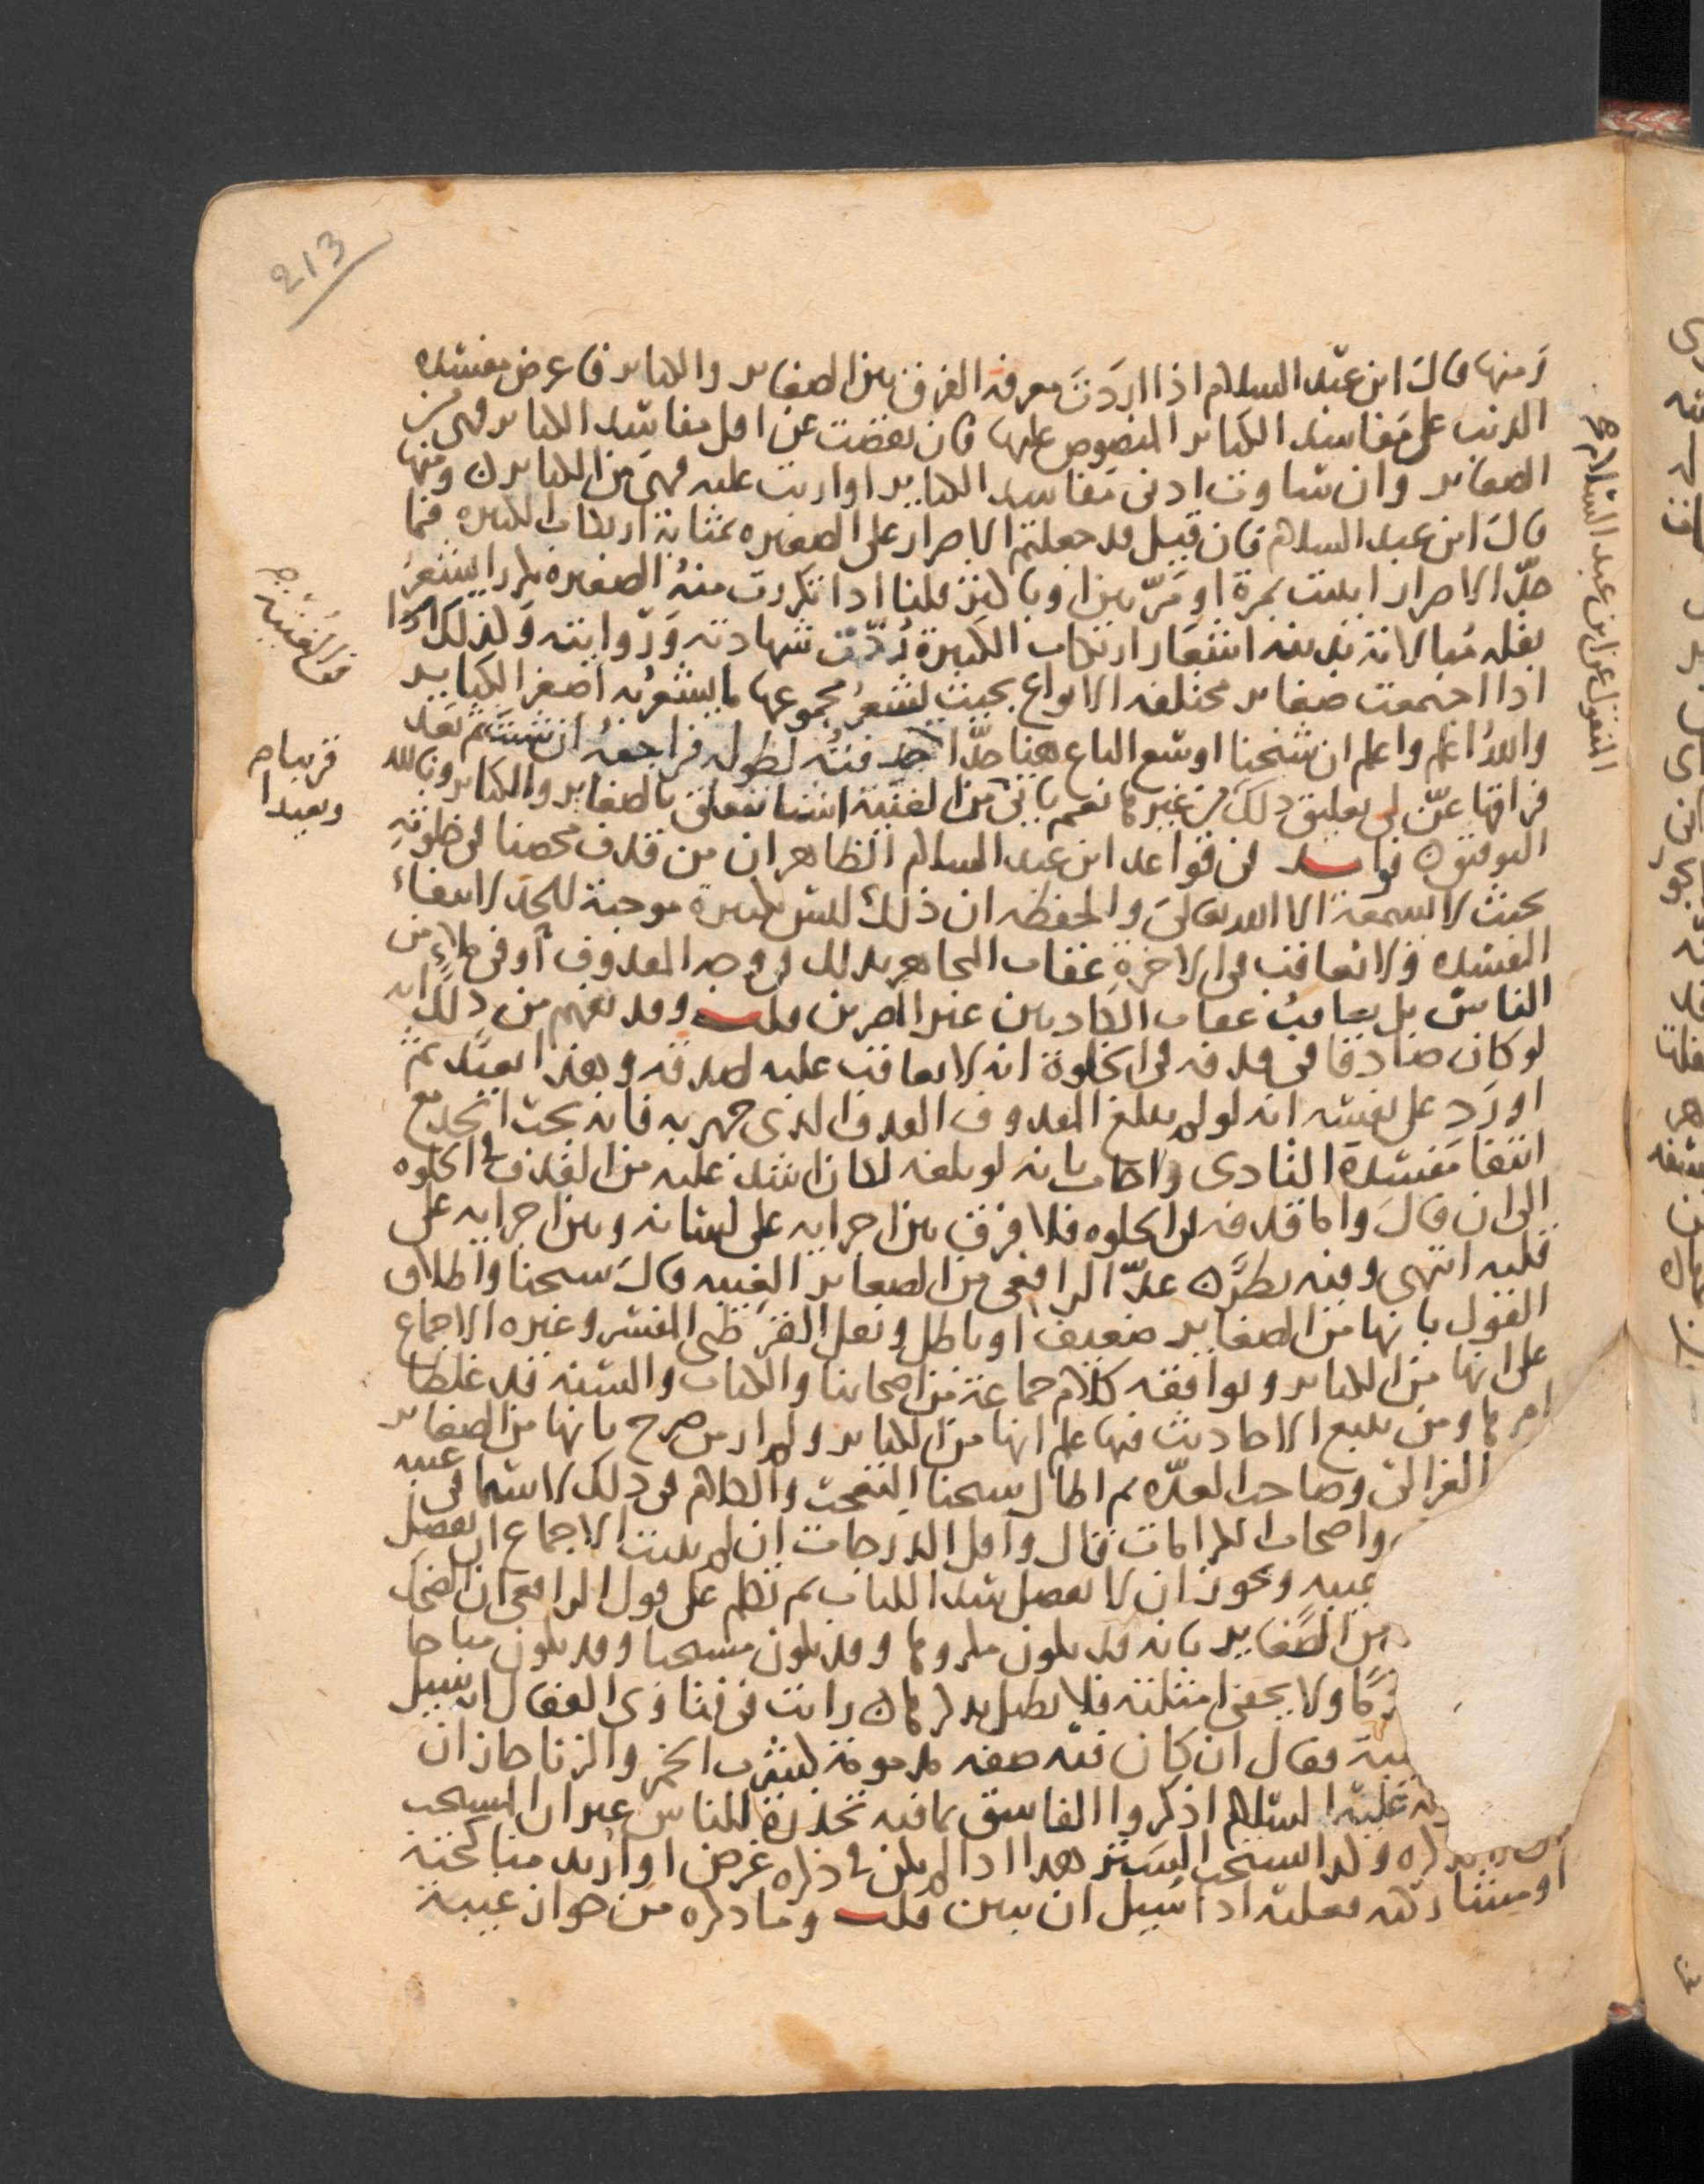 213
ومنها قال ابن عبد السلام اذا اردت معرفة الفرق بين الصغاير والكباير فاعرض مفسده
الذنب على مفاسد الكباير المنصوص عليها فان نقصت عن اقل مفاسد الكباير فهي من
الصغاير وان ساوت ادنى مفاسد الكباير او اربت عليه فهي من الكباير ومنها
قال ابن عبد السلام فان قيل قد جعلتم الاصرار على الصغيره بمثابة ارتكاب الكبيره فما
حد الاصرار ايثبت بمرة او مرتين او باكثر قلنا اذا تكررت منه الصغيره تكررا يشعر
بقله مبالاته بدينه اشعار ارتكاب الكبيرة ردت شهادته وروايته وكذلك
اذا اجتمعت صغاير مختلفه الانواع بحيث يشعر مجموعها ما يشعر به اصغر الكباير
والله اعلم واعلم ان شيخنا اوسع الباع هنا جدا فراجعه ان شئت ثم بعد
فراقها عن لي تعليق ذلك من غيرها نعم ياتي من الغيبة اشيا تتعلق بالصغاير والكباير وبالله
التوفيق في قواعد ابن عبد السلام الظاهر ان من قذف محصنا في خلوته
بحيث لا يسمعه الا الله تعالى والحفظه ان ذلك ليس بكبيرة موجبة للحد لانتفاء
المفسده ولا يعاقب في الاخرة عقاب المجاهر بذلك في وجه المقذوف او في ملاء من
الناس بل يعاقب عقاب الكاذبين غير المصرين قلت وقد يفهم من ذلك انه
لو كان صادقا في قذفه في الخلوة انه لا يعاقب عليه لصدقه وهذا بعيد ثم
اورد على نفسه انه لو لم يبلغ المقذوف القذف الذي جهر به فانه يجب الحد مع
انتفا مفسدة التاذي واجاب بانه لو بلغه لكان اشد عليه من القذف في الخلوه
الى ان قال واما قذفه في الخلوه فلا فرق بين اجرايه على لسانه وبين اجرايه على
قلبه انتهى وفيه نظر عد الرافعي من الصغاير الغيبه قال شيخنا واطلاق
القول بانها من الصغاير ضعيف او باطل ونقل القرطبي المفسر وغيره الاجماع
على انها من الكباير ويوافقه كلام جماعة من اصحابنا والكتاب والسنه قد غلظا
امرها ومن يتبع الاحاديث فيها علم انها من الكباير ولم ار من صرح بانها من الصغاير
الغزالي وصاحب العده ثم اطال شيخنا والكلام في ذلك لا سيما في غيبه
واصحاب الكرامات قال واقل الدرجات ان لم يثبت الاجماع ان يفصل
غيبه ويجوز ان لا يفصل ثم تكلم على قول الرافعي ان الضحك
من الصغاير بانه قد يكون مكروها وقد يكون مستحبا وقد يكون مباحا
ولا يخفى امثلته فلا نطيل بذكرها رايت في فتاوى القفال انه سيل
فقال ان كان فيه صفه مذمومة كشرب الخمر والزنا جاز ان
عليه السلام اذكروا الفاسق بما فيه تحذره الناس غير ان المستحب
هذا اذا لم يكن في ذكره غرض او اريد مناكحته
او مشاركته فعليه اذا سيل ان يبين قلت وما ذكره من جواز غيبة
المنقول عن ابن عبد السلام
قريبا
وبعيدا